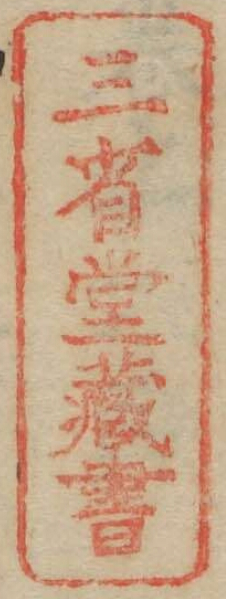 三省堂藏書